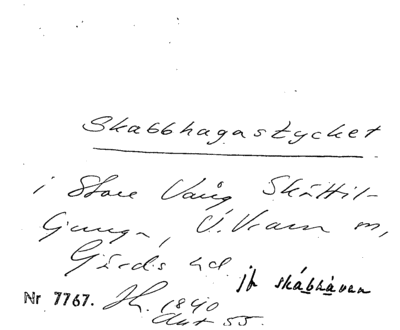 Skabbhagastycket
i Store Vång Skättil-
ljunga, V. Vram m,
Gärds hd.
jfr skábhàven
Nr 7767. Jh. 1840
Akt 55.